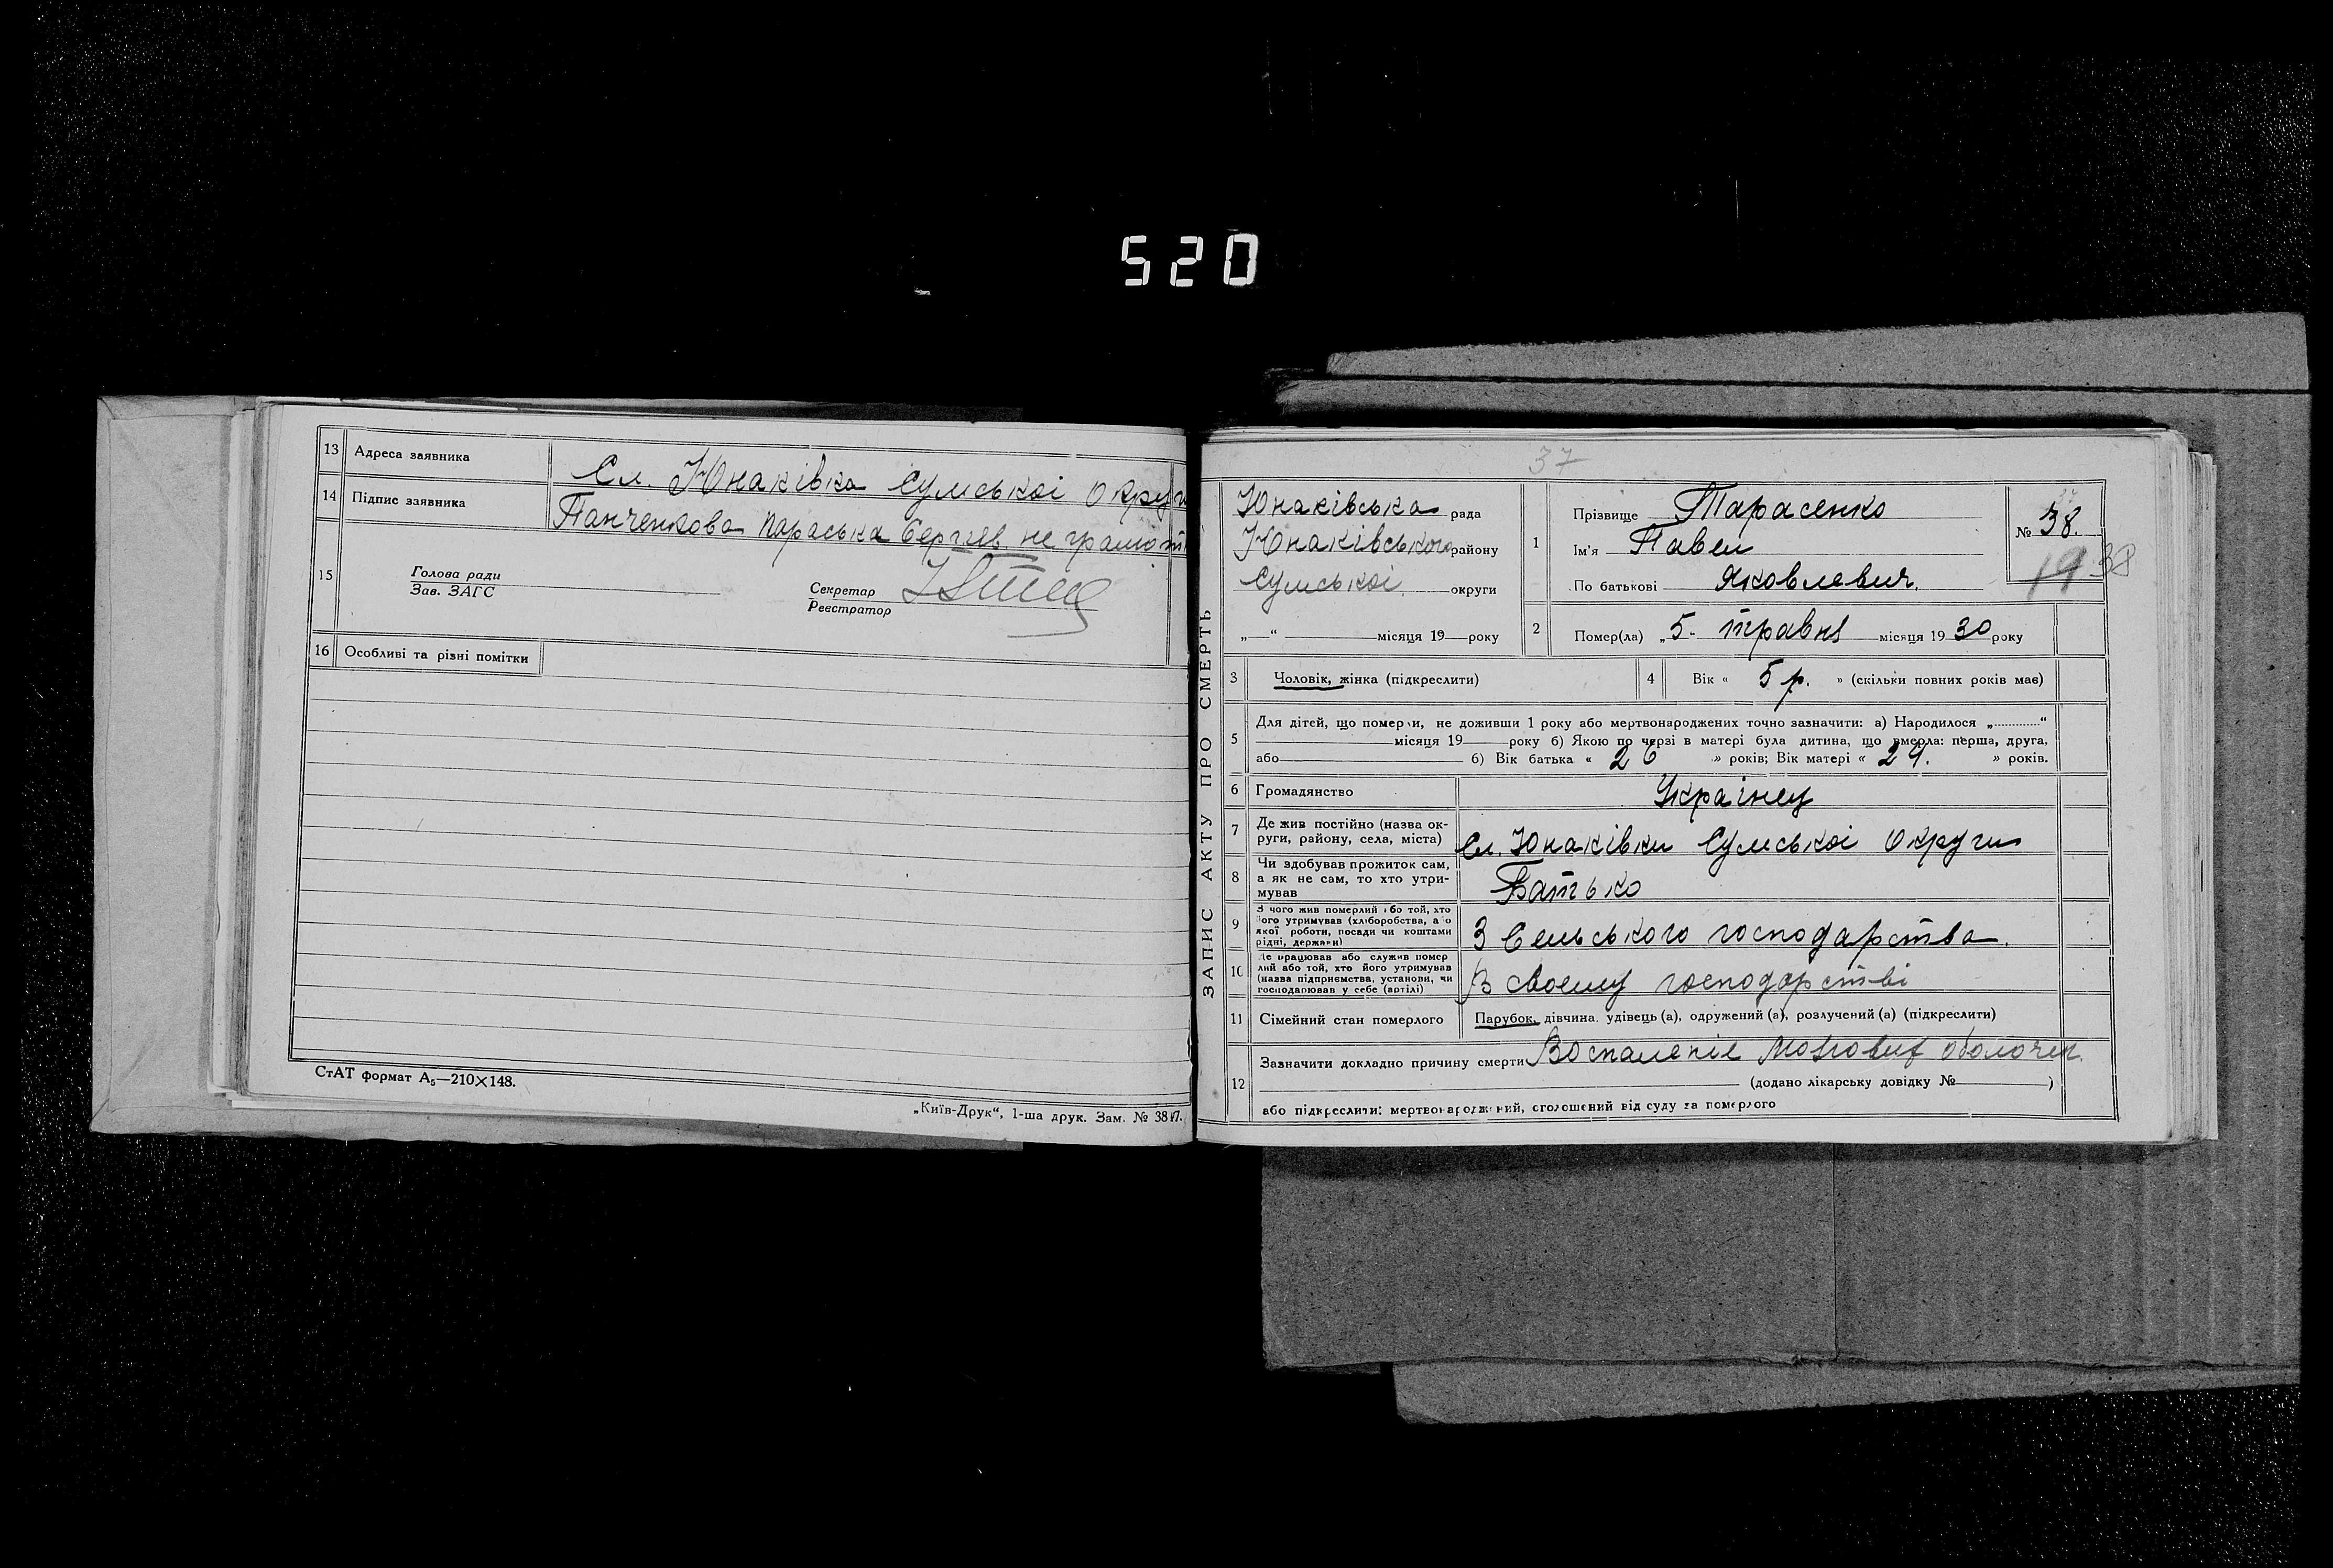 520
13 Адреса заявника Сл. Юнаківка Сумської Округи
14 Підпис заявника Панченкова Параська Сергіев. не грамотн
15 Голова ради
Зав. ЗАГС
Секретар
Реєстратор
16 Особливі та різні помітки
СтАТ формат А₅—210×148.
„Київ-Друк“, 1-ша друк. Зам. № 3817.
ЗАПИС АКТУ ПРО СМЕРТЬ
37
Юнаківська рада
Юнаківського району
Сумської округи
„—“ місяця 19—року
1 Прізвище Тарасенко
Ім'я Павел
По батькові Яковлевич.
№ 38.
19 38
2 Помер(ла) „5. травня місяця 1930 року
3 Чоловік, жінка (підкреслити)
4 Вік « 5 р. » (скільки повних років має)
5 Для дітей, що померли, не доживши 1 року або мертвонароджених точно зазначити: а) Народилося „............“
місяця 19——року б) Якою по черзі в матері була дитина, що вмерла: перша, друга,
або б) Вік батька « 26 » років; Вік матері « 24. » років.
6 Громадянство Українец
7 Де жив постійно (назва ок-
руги, району, села, міста) Сл. Юнаківки Сумської Округи
8 Чи здобував прожиток сам,
а як не сам, то хто утри-
мував Батько
9 З чого жив померлий або той, хто
його утримував (хліборобства, або
якої роботи, посади чи коштами
рідні, держави) З Сельського господарства.
10 Де працював або служив помер
лий або той, хто його утримував
(назва підприємства, установи, чи
господарював у себе (артілі) В своему господарстві
11 Сімейний стан померлого Парубок, дівчина. удівець (а), одружений (а), розлучений (а) (підкреслити)
12 Зазначити докладно причину смерти Воспаление Мозговых оболочек.
(додано лікарську довідку № )
або підкреслити: мертвонароджений, оголошений від суду за померлого